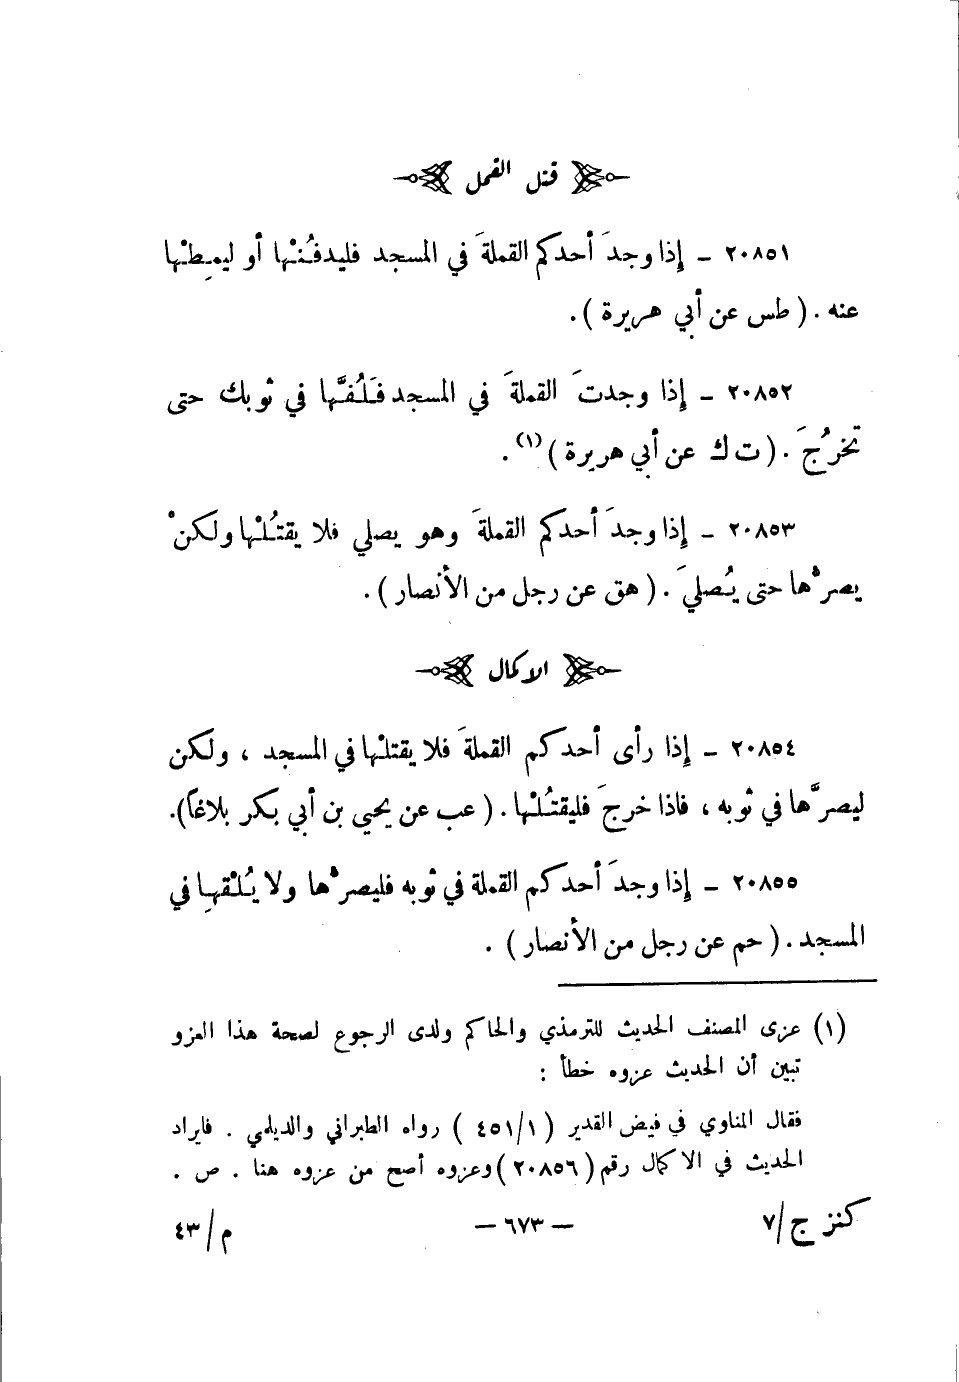 قتل القمل
٢٠٨٥١ ـ إذا وجدَ أحدكم القملةَ في المسجد فليدفُنْها أو ليمِطْها
عنه . ( طس عن أبي هريرة ) .
٢٠٨٥٢ ـ إذا وجدتَ القملةَ في المسجد فَلُفَّها في ثوبك حتى
تخرُجَ . ( ت ك عن أبي هريرة )(١) .
٢٠٨٥٣ ـ إذا وجدَ أحدكم القملةَ وهو يصلي فلا يقتُلْها ولكنْ
يصرُّها حتى يُصليَ . ( هق عن رجل من الأنصار ) .
الاكمال
٢٠٨٥٤ ـ إذا رأى أحدكم القملةَ فلا يقتلْها في المسجد ، ولكن
ليصرَّها في ثوبه ، فاذا خرجَ فليقتُلْها . ( عب عن يحيى بن أبي بكر بلاغاً ) .
٢٠٨٥٥ ـ إذا وجدَ أحدكم القملة في ثوبه فليصرُّها ولا يُلْقِها في
المسجد . ( حم عن رجل من الأنصار ) .
(١) عزى المصنف الحديث للترمذي والحاكم ولدى الرجوع لصحة هذا العزو
تبين أن الحديث عزوه خطأ :
فقال المناوي في فيض القدير ( ٤٥١/١ ) رواه الطبراني والديلمي . فايراد
الحديث في الاكمال رقم ( ٢٠٨٥٦ ) وعزوه أصح من عزوه هنا . ص .
كنز ج/٧ — ٦٧٣ — م/٤٣